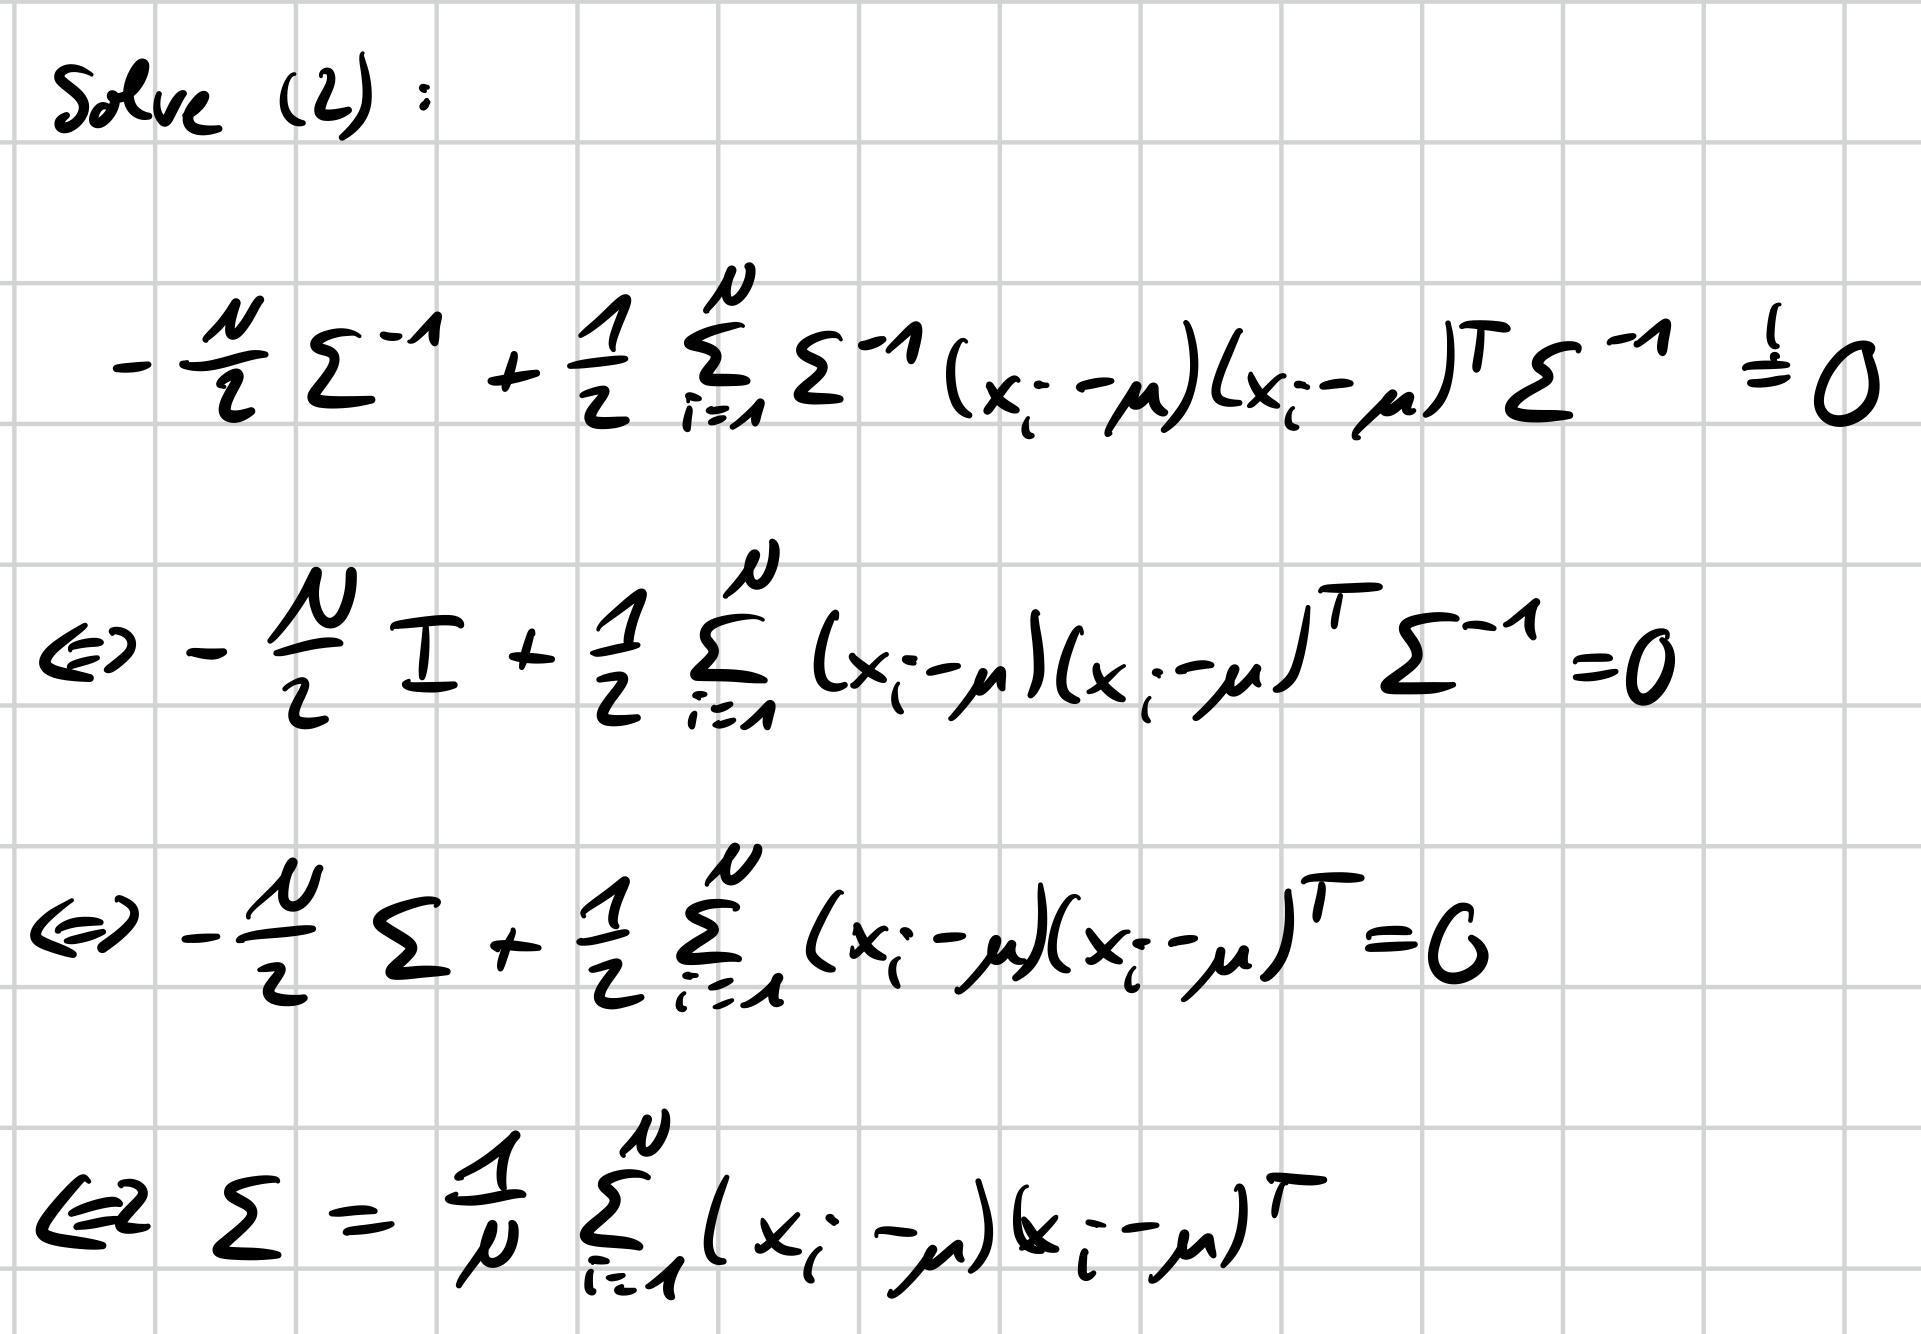 Solve (2):
-N/2 Σ⁻¹ + 1/2 Σ_{i=1}^{N} Σ⁻¹ (x_i - μ)(x_i - μ)ᵀ Σ⁻¹ =! 0
⇔ -N/2 I + 1/2 Σ_{i=1}^{N} (x_i - μ)(x_i - μ)ᵀ Σ⁻¹ = 0
⇔ -N/2 Σ + 1/2 Σ_{i=1}^{N} (x_i - μ)(x_i - μ)ᵀ = 0
⇔ Σ = 1/N Σ_{i=1}^{N} (x_i - μ)(x_i - μ)ᵀ